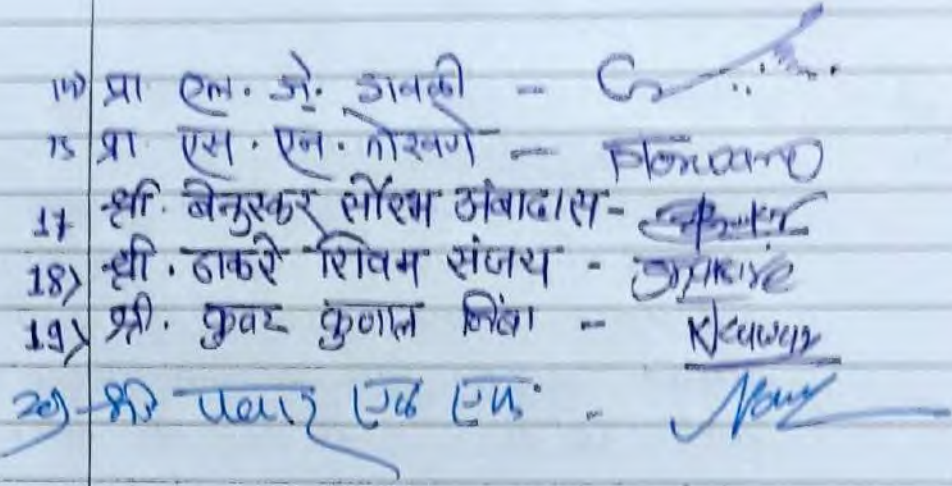 14) प्रा. एल. जे. गवळी -
15 प्रा. एस. एन. तोरवणे -
17 श्री. बेनुस्कर सौरभ अंबादास -
18) श्री. ठाकरे शिवम संजय -
19) श्री. कुवर कुणाल निंबा - Kkuwar
20) श्री पवार एन एम. -